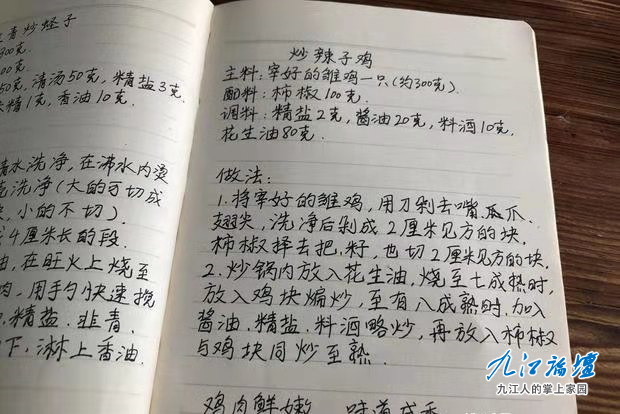 韭青炒蛏子
300克.
00克.
50克,清汤50克,精盐3克.
味精1克,香油10克.
清水洗净,在沸水内烫
洗净(大的可切成
小的不切).
4厘米长的段.
油,在旺火上烧至
肉,用手勺快速搅
精盐.韭青.
下,淋上香油.
炒辣子鸡
主料:宰好的雏鸡一只(约300克).
配料:柿椒100克.
调料:精盐2克,酱油20克,料酒10克.
花生油80克.
做法:
1.将宰好的雏鸡,用刀剁去嘴.瓜爪.
翅尖,洗净后剁成2厘米见方的块.
柿椒择去把.籽,也切2厘米见方的块.
2.炒锅内放入花生油,烧至七成热时,
放入鸡块煸炒,至有八成熟时,加入
酱油.精盐.料酒略炒,再放入柿椒
与鸡块同炒至熟.
鸡肉鲜嫩 味道咸香
九江论坛
九江人的掌上家园